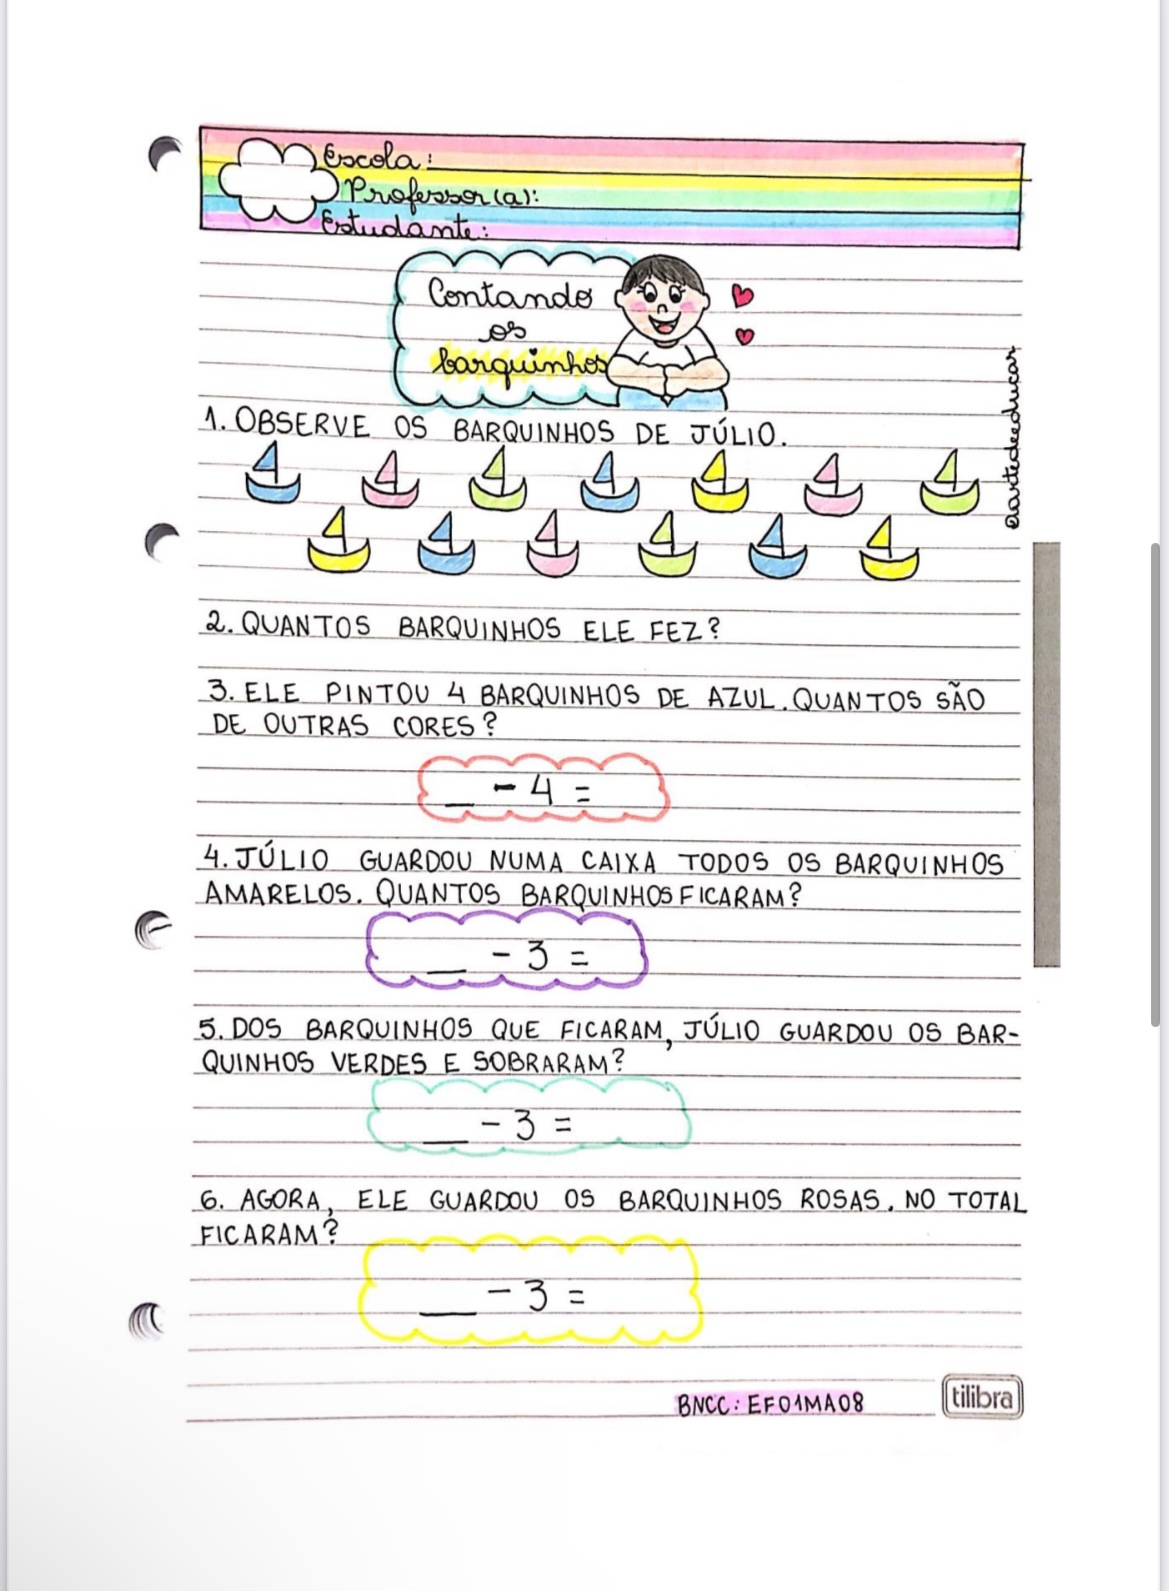 Escola:
Professor(a):
Estudante:
Contando
os
barquinhos
1. OBSERVE OS BARQUINHOS DE JÚLIO.
@artedeeducar
2. QUANTOS BARQUINHOS ELE FEZ?
3. ELE PINTOU 4 BARQUINHOS DE AZUL. QUANTOS SÃO
DE OUTRAS CORES?
__ - 4 =
4. JÚLIO GUARDOU NUMA CAIXA TODOS OS BARQUINHOS
AMARELOS. QUANTOS BARQUINHOS FICARAM?
__ - 3 =
5. DOS BARQUINHOS QUE FICARAM, JÚLIO GUARDOU OS BAR-
QUINHOS VERDES E SOBRARAM?
__ - 3 =
6. AGORA, ELE GUARDOU OS BARQUINHOS ROSAS. NO TOTAL
FICARAM?
__ - 3 =
BNCC: EF01MA08
tilibra